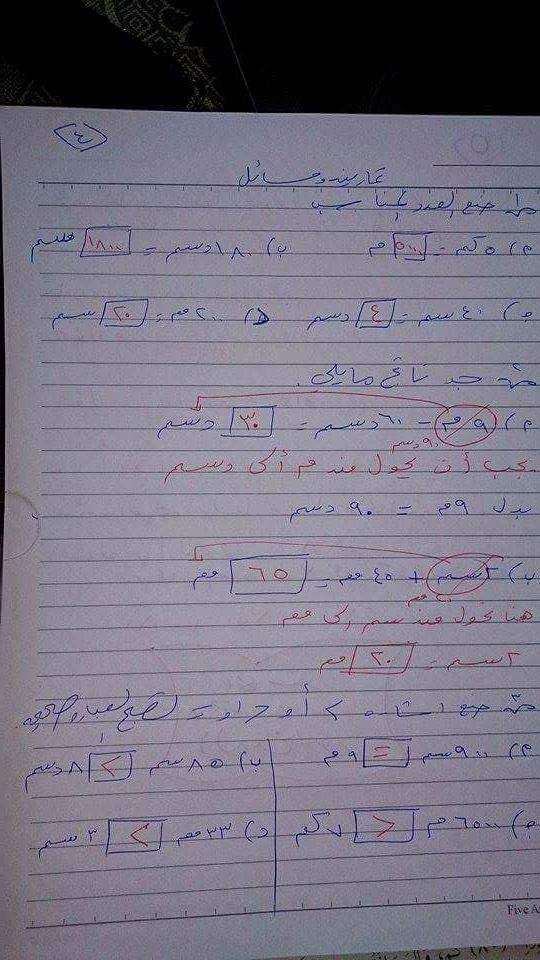 ٤
تمارين ومسائل
س١ ضع العدد المناسب
أ) ٥ كم = ٥٠٠٠ م ب) ١٨٠ دسم = ١٨٠٠٠ ملم
ج) ٤٠ سم = ٤ دسم د) ٢٠٠ مم = ٢٠ سم
س٢ جد ناتج مايلي.
أ) ٩ م - ٦٠ دسم = ٣٠ دسم
٩٠ دسم
يجب أن يحول من م الى دسم
بدل ٩م = ٩٠ دسم
ب) ٢ سم + ٤٥ مم = ٦٥ مم
٢٠ مم
هنا نحول من سم الى مم
٢ سم = ٢٠ مم
س٣ ضع اشارة > أو < او = لتصبح العبارة صحيحة
أ) ٩٠٠ سم = ٩ م ب) ٨٥ سم > ٨ دسم
ج) ٦٥٠٠ م < ٧ كم د) ٣٣ مم > ٣ سم
Five